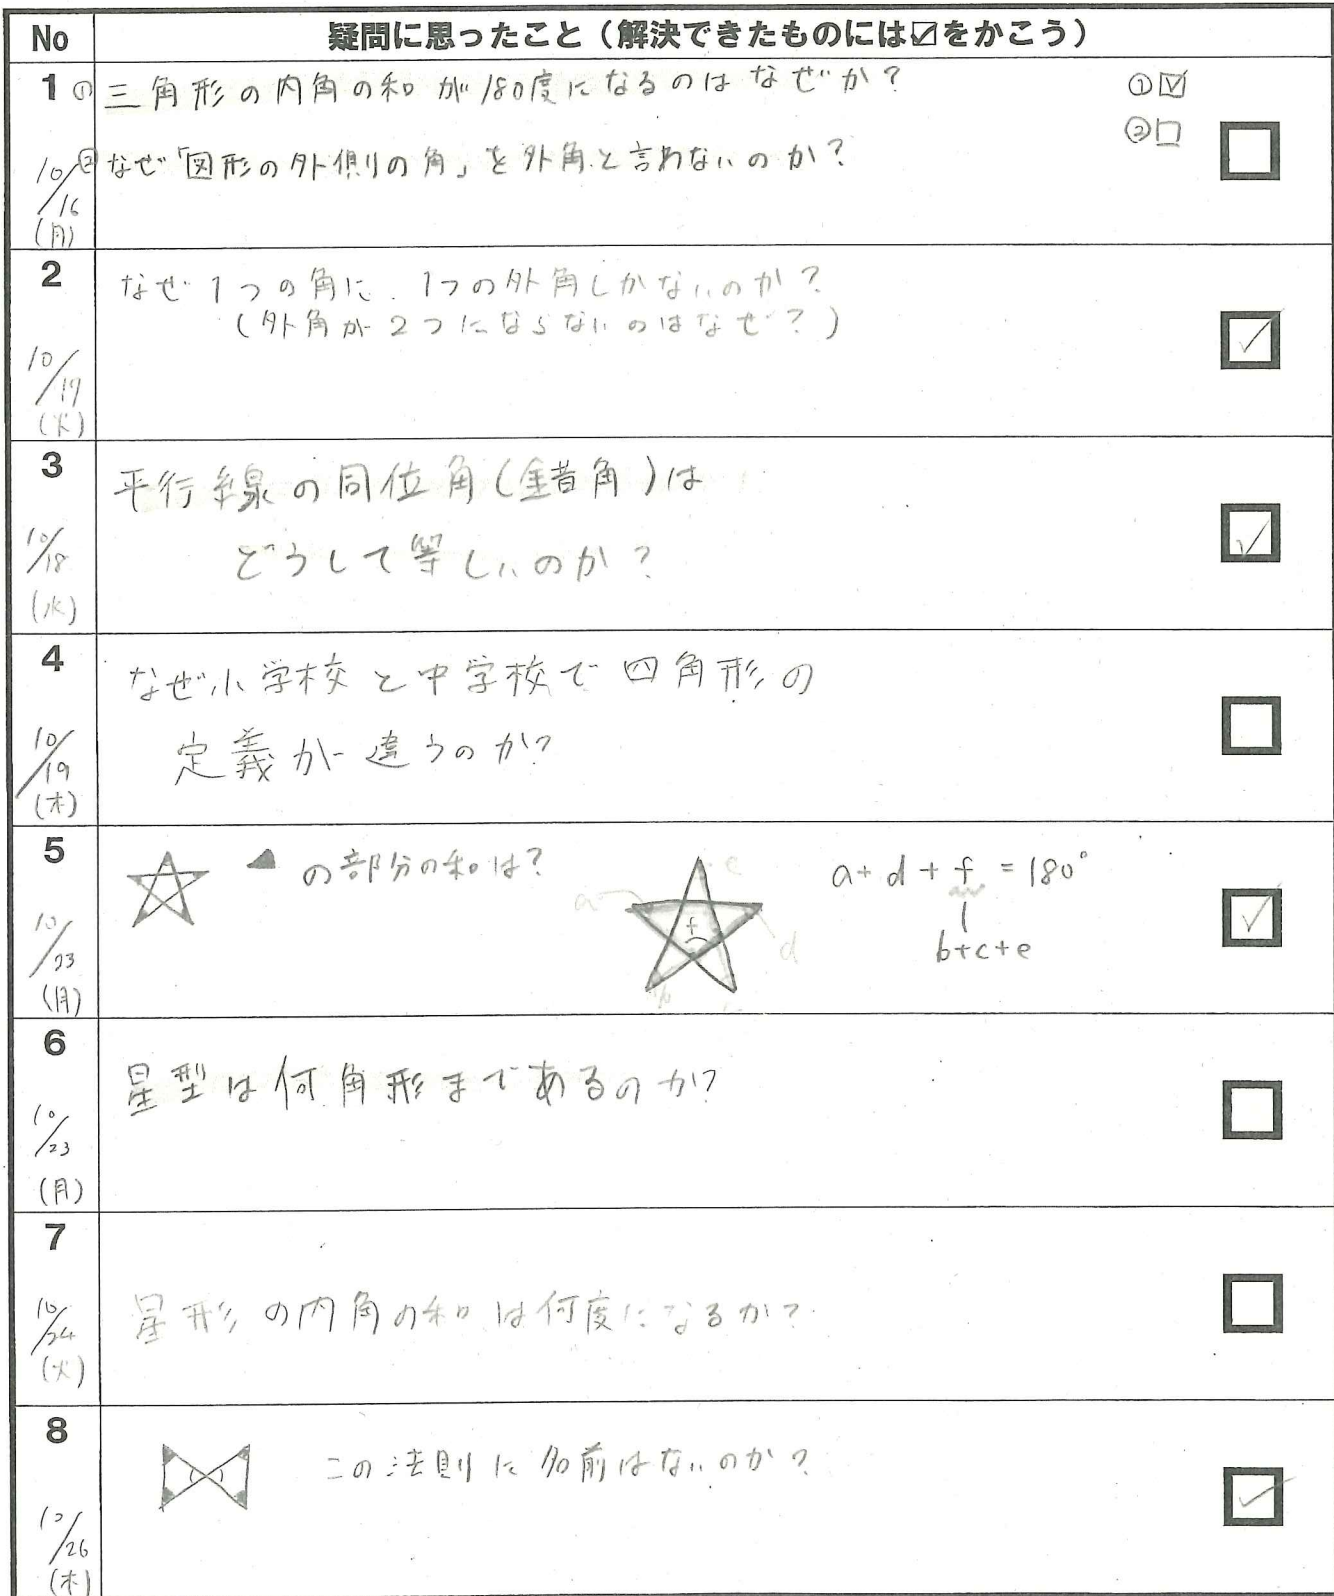 No 疑問に思ったこと（解決できたものには☑をかこう）
1 ① 三角形の内角の和が180度になるのはなぜか？ ①☑
②□
10/16 ② なぜ「図形の外側の角」を外角と言わないのか？
(月)
2 なぜ1つの角に、1つの外角しかないのか？
(外角が2つにならないのはなぜ？)
10/17
(火)
3 平行線の同位角(錯角)は
どうして等しいのか？
10/18
(水)
4 なぜ小学校と中学校で四角形の
定義が違うのか？
10/19
(木)
5 の部分の和は？
a c f d b
a+d+f=180°
b+c+e
10/23
(月)
6 星型は何角形まであるのか？
10/23
(月)
7
星形の内角の和は何度になるか？
10/24
(火)
8 この法則に名前はないのか？
10/26
(木)